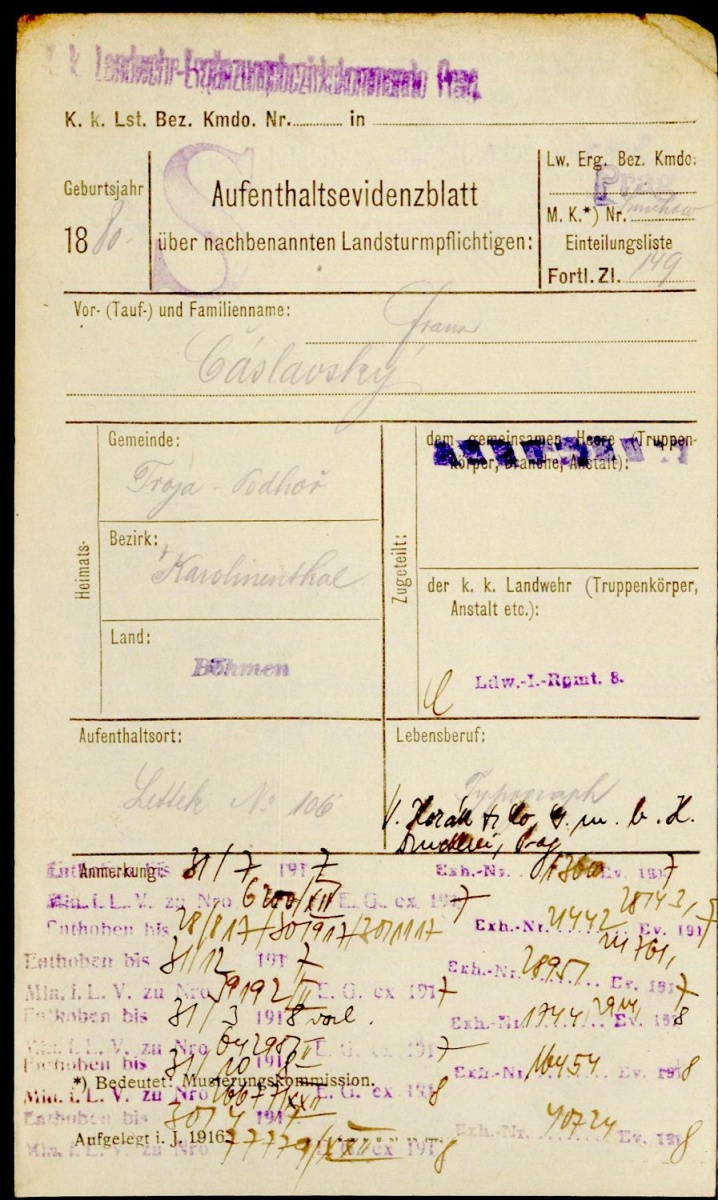 k. Landwehr-Ergänzungsbezirkskommando Prag
K. k. Lst. Bez. Kmdo. Nr. in
Geburtsjahr
1880.
S
Aufenthaltsevidenzblatt
über nachbenannten Landsturmpflichtigen:
Lw. Erg. Bez. Kmdo:
Prag
M. K.*) Nr. Smichow
Einteilungsliste
Fortl. Zl. 149
Vor- (Tauf-) und Familienname:
Franz
Čáslavský
Heimats-
Gemeinde:
Troja - Podhoř
Bezirk:
Karolinenthal
Land:
Böhmen
Zugeteilt:
dem gemeinsamen Heere (Truppen-
körper, Branche, Anstalt):
der k. k. Landwehr (Truppenkörper,
Anstalt etc.):
Ldw.-I.-Rgmt. 8.
Aufenthaltsort:
Lettek No 106
Lebensberuf:
Typograph
V. Horák & Co, G. m. b. H.
Druckerei, Prag
Anmerkung:
Enthoben bis 31/7 1917 Exh.-Nr. Ev. 1917
Min. f. L. V. zu Nro E. G. ex 1917
Enthoben bis 28/8 17/30/9 17/30/11 17 Exh.-Nr. 21442 Ev. 191
Enthoben bis 31/12 1917
Exh.-Nr. 28951 Ev. 1917
Min. f. L. V. zu Nro E. G. ex 1917
Enthoben bis 31/3 1918 Exh.-Nr. 1744 Ev. 1918
Min. f. L. V. zu Nro E. G. ex 1917
Enthoben bis 191 Exh.-Nr. 16454 Ev. 1918
*) Bedeutet: Musterungskommission.
Min. f. L. V. zu Nro E. G. ex 1918
Enthoben bis 191 Exh.-Nr. 40724 Ev. 1918
Aufgelegt i. J. 1916.
Min. f. L. V. zu Nro ex 1918